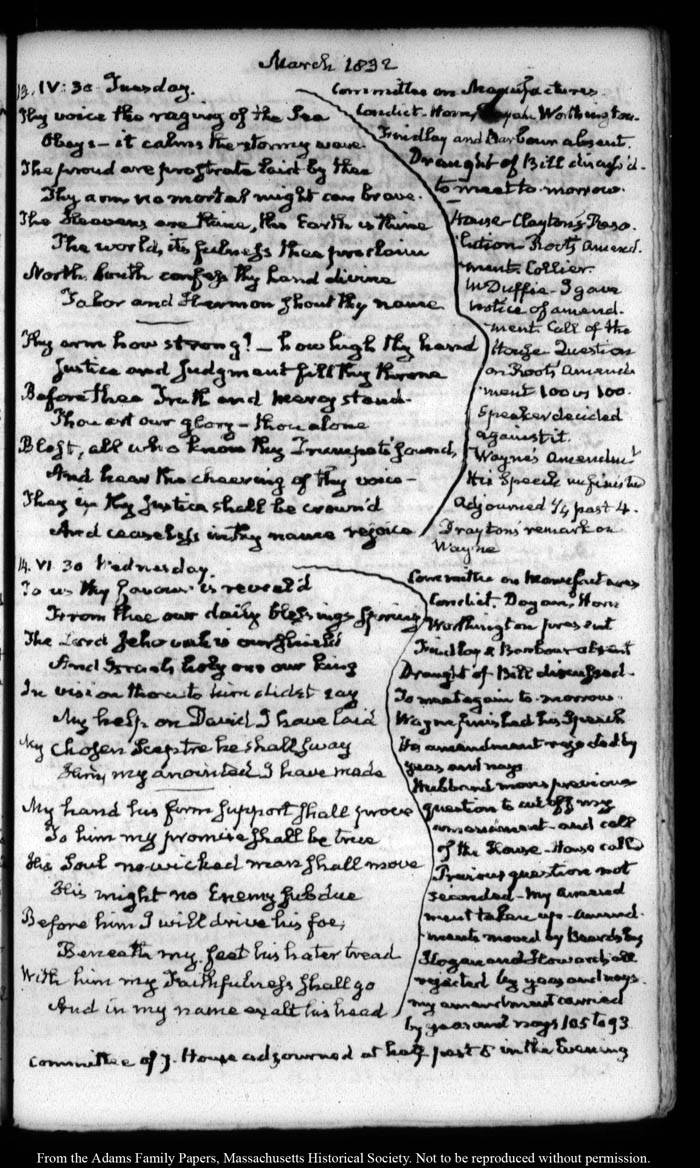 March 1832
13. IV: 30 Tuesday.
Thy voice the raging of the Sea
Obeys – it calms the stormy wave.
The proud are prostrate laid by thee
Thy arm no mortal might can brave.
The Heavens are thine, the Earth is thine
The world, its fulness thee proclaim
North, South confess thy hand divine
Tabor and Hermon shout thy name
Thy arm how strong! – how high thy hand
Justice and Judgment fill thy throne
Before thee Truth and Mercy stand.
Thou art our glory – thou alone
Blest, all who know thy Trumpet's sound,
And hear the cheering of thy voice –
They in thy Justice shall be crown'd
And ceaseless in thy name rejoice
Committee on Manufactures.
Condict. Horn, Worthington.
Findlay and Barbour absent.
Draught of Bill discuss'd.
to meet to-morrow.
House – Clayton's Reso-
lution Root's Amend-
ment. Collier.
McDuffie – I gave
notice of amend-
ment Call of the
House Question
on Root's Amend
ment 100 us 100.
Speaker decided
against it.
Wayne's Amendmt
His Speech unfinished
Adjourned ¼ past 4.
Drayton's remark on
Wayne
14. VI. 30 Wednesday
To us thy favour is reveal'd
From thee our daily blessings spring
The Lord Jehovah is our shield
And Israel's holy one our king
In vision thou to him didst say
My help on David I have laid
My chosen Sceptre he shall sway
Him, my anointed I have made
My hand his firm support shall prove
To him my promise shall be true
His Soul no wicked man shall move
His might no Enemy subdue
Before him I will drive his foe,
Beneath my feet his hater tread
With him my Faithfulness shall go
And in my name exalt his head
Committee on Manufactures
Condict. Dayan, Horn
Worthington present
Findlay & Barbour absent
Draught of Bill discussed.
To meet again to-morrow.
Wayne finished his Speech
His amendment rejected by
yeas and nays.
Hubbard moves previous
question to cut off my
amendment – and call
of the House – House called
Previous question not
seconded – My Amend
ment taken up – Amend-
ments moved by Beardsley
Slogane and Howard; all
rejected by yeas and nays.
my amendment carried
by yeas and nays 105 to 93
committee of 7. House adjourned at half past 5 in the Evening
From the Adams Family Papers, Massachusetts Historical Society. Not to be reproduced without permission.